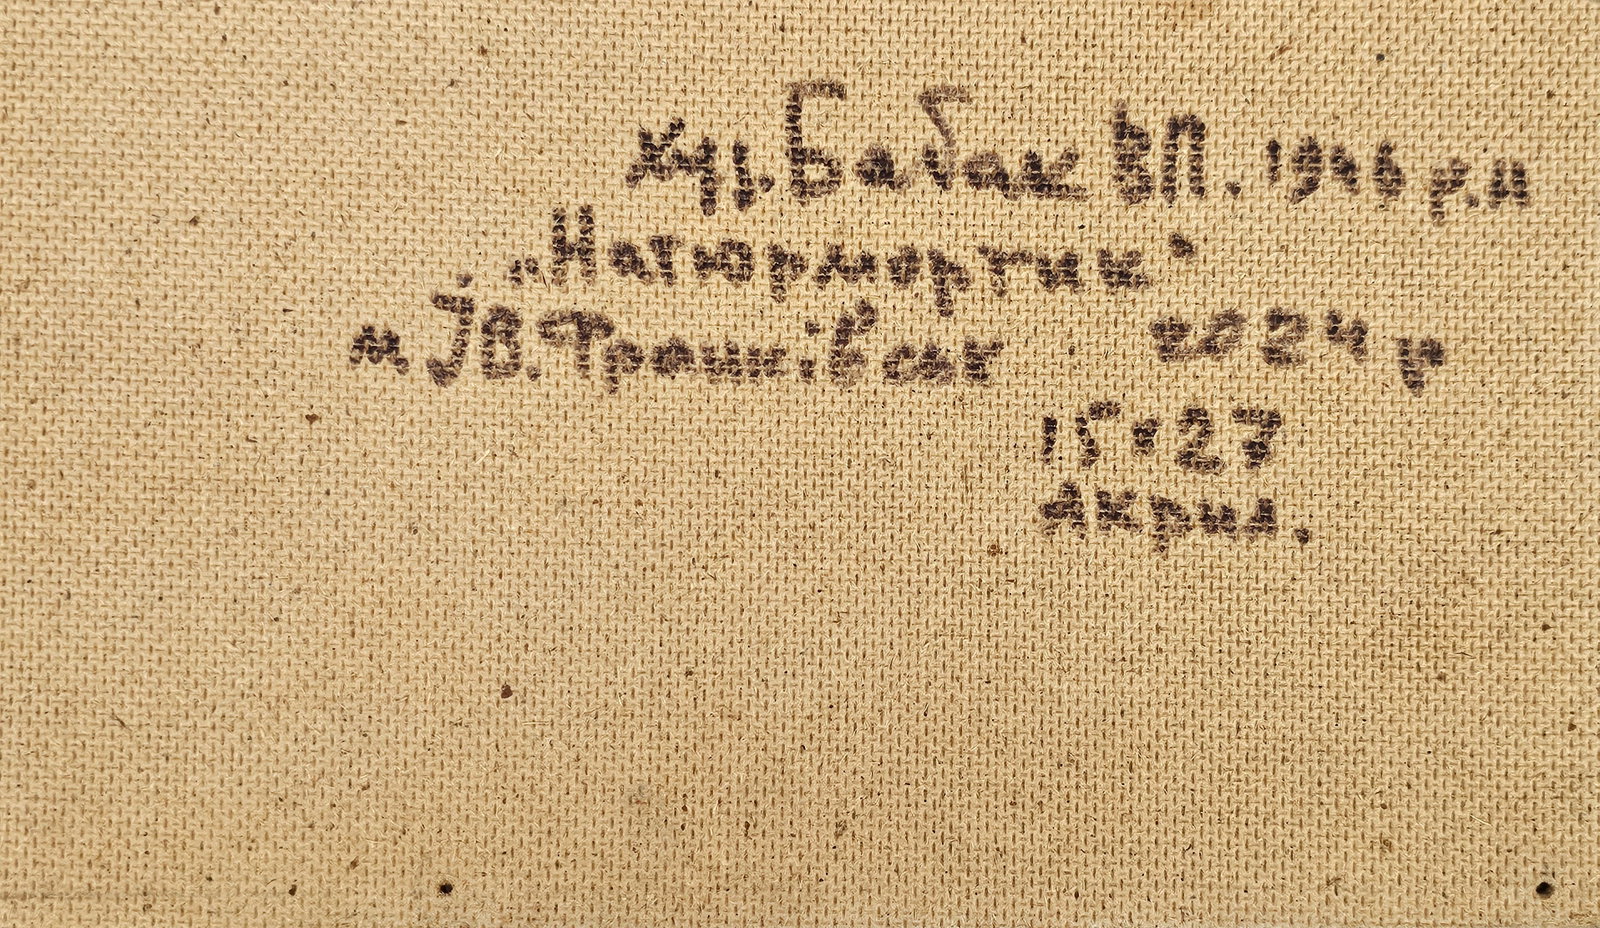 Худ. Бабак ВП. 1946 р.н
„Натюрмортик"
м Ів. Франківськ 2024 р
15*27
Акрил.